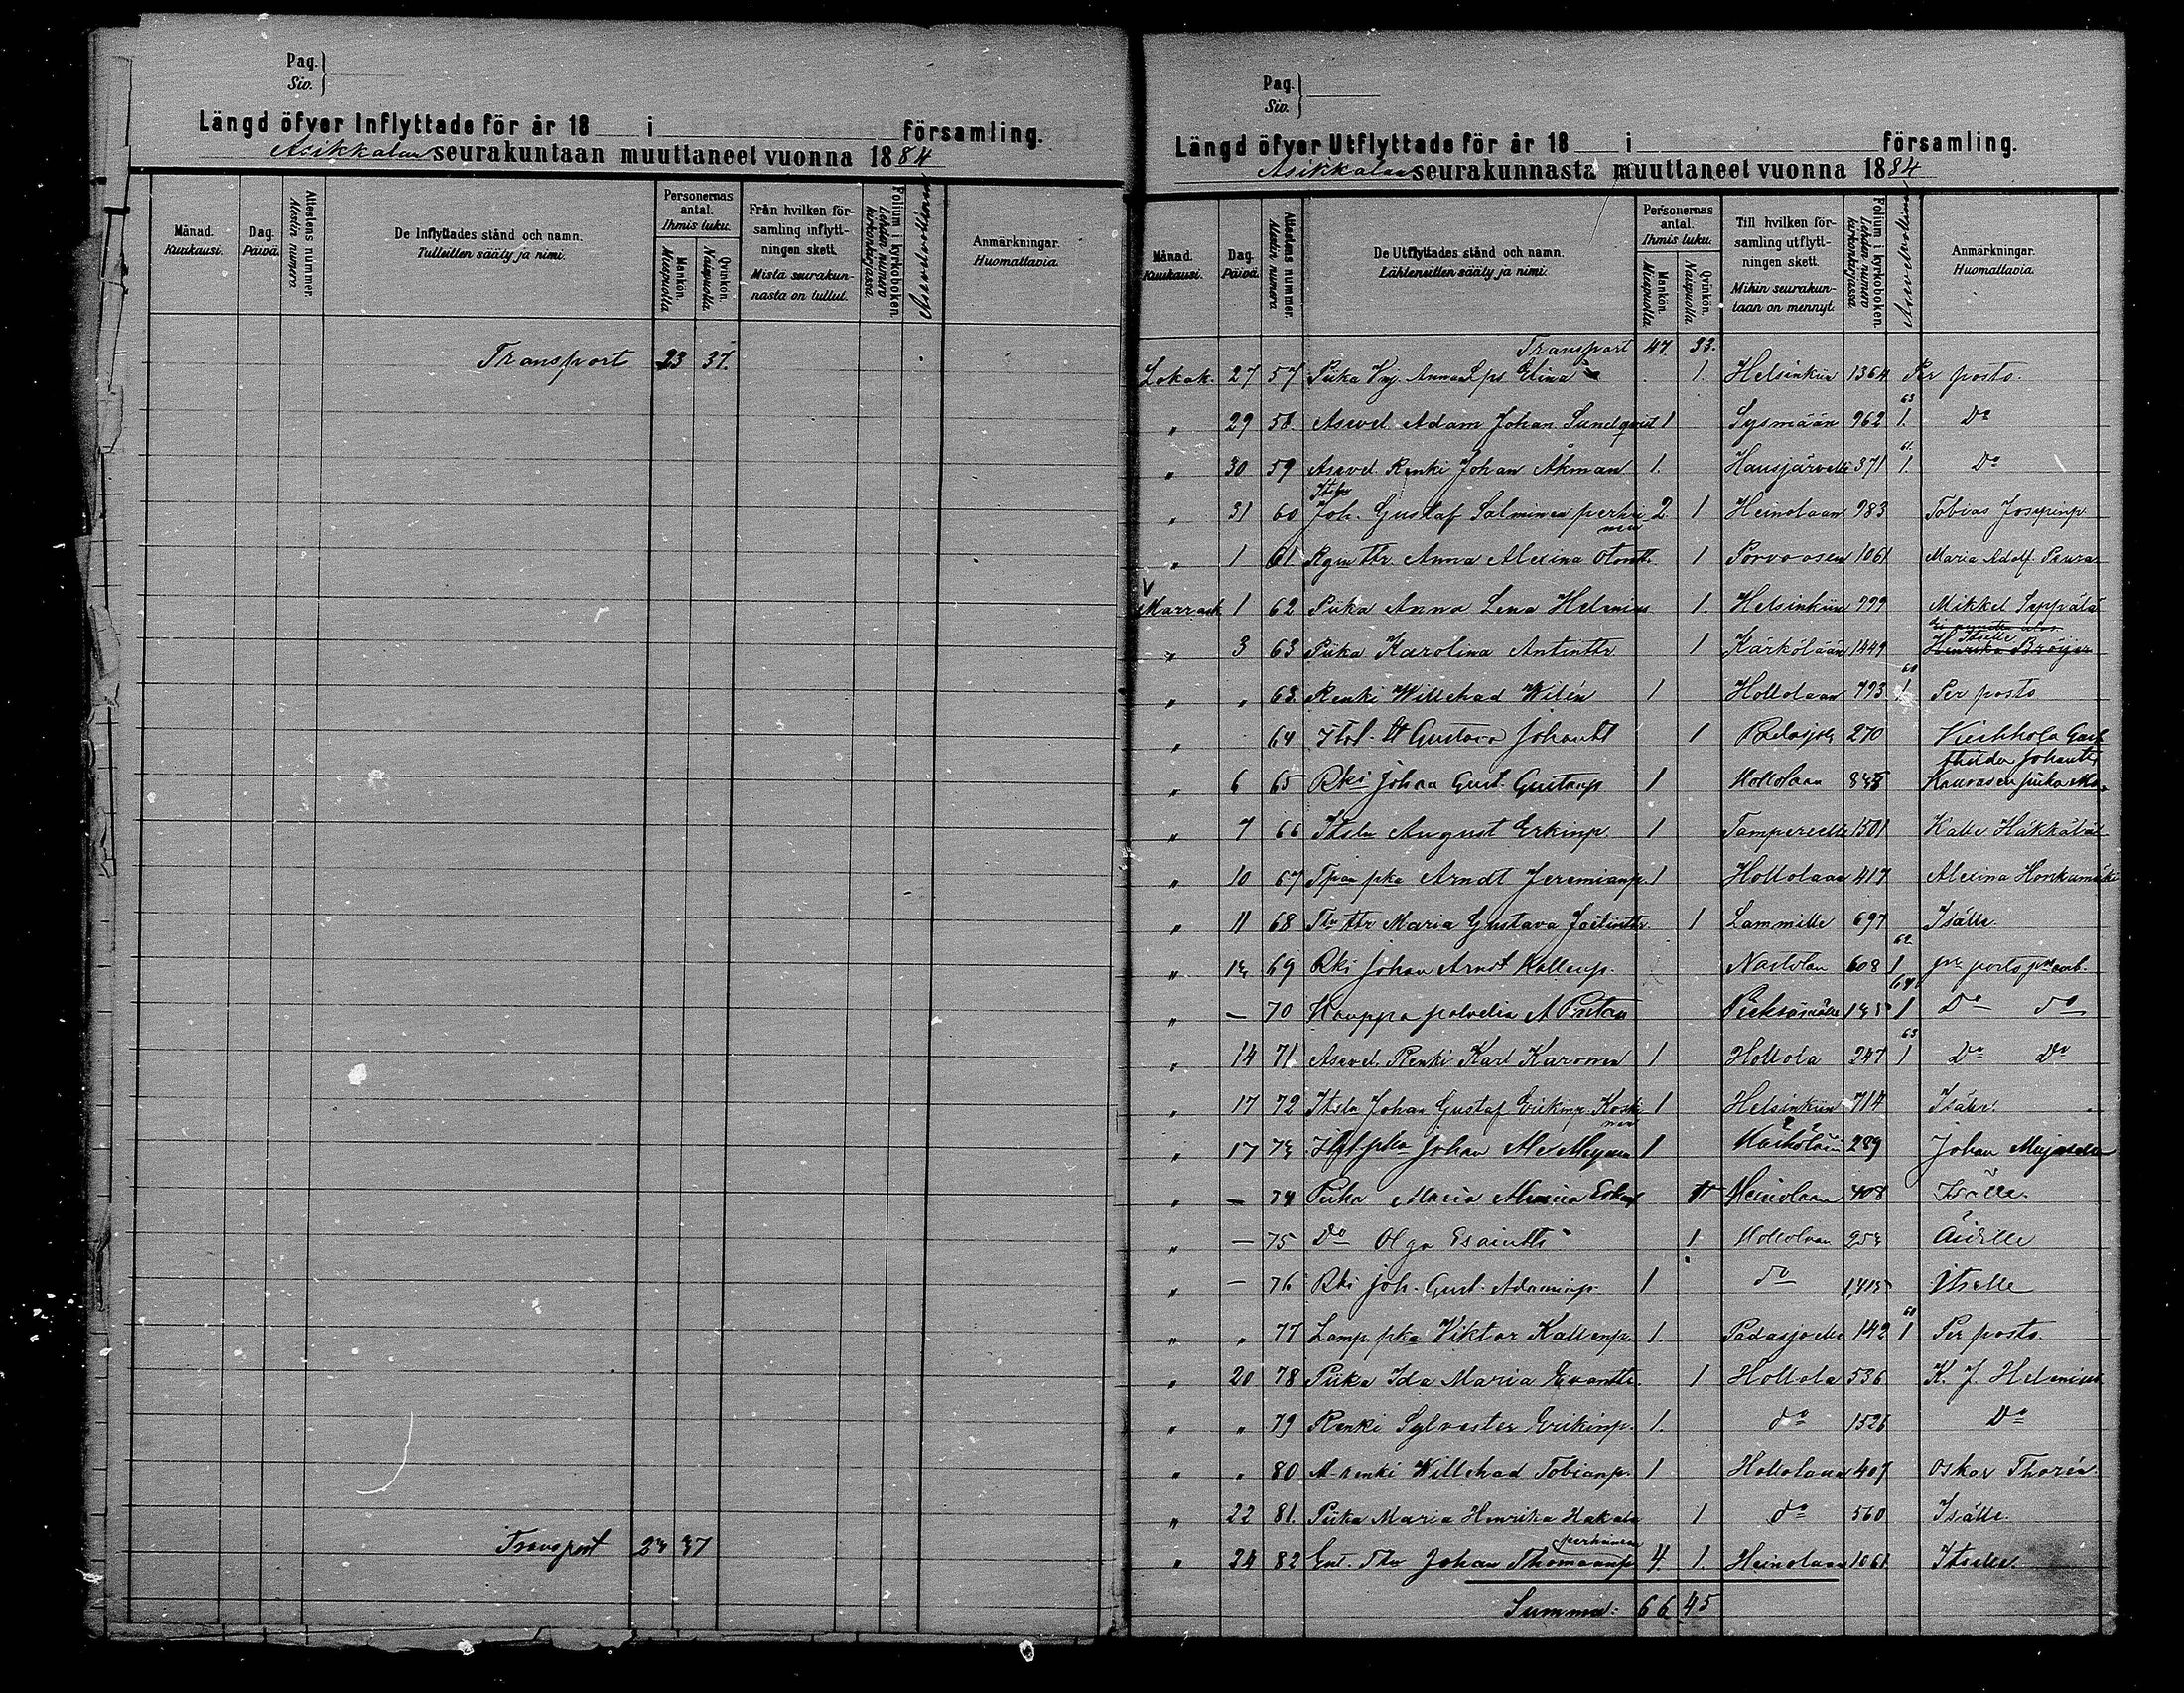 Pag.
Siv.
Längd öfver Inflyttade för år 18 i församling.
Asikkalan seurakuntaan muuttaneet vuonna 1884
Månad.
Kuukausi.
Dag.
Päivä.
Attestens nummer.
Alestin numero
De Inflyttades stånd och namn.
Tulleitten sääty ja nimi.
Personernas antal.
Ihmis luku.
Mankön.
Miespuolia
Qvinkön.
Naispuolia
Från hvilken för-
samling inflytt-
ningen skett.
Mistä seurakun-
nasta on tullut.
Folium i kyrkoboken.
Lehden numero
kirkonkirjassa.
Asevelvollisia
Anmärkningar.
Huomattavia.
Transport 23 37.
Transport 23 37
Pag.
Siv.
Längd öfver Utflyttade för år 18 i församling.
Asikkalan seurakunnasta muuttaneet vuonna 1884
Månad.
Kuukausi.
Dag.
Päivä.
Attestens nummer.
Alestin numero
De Utflyttades stånd och namn.
Lähteneitten sääty ja nimi.
Personernas antal.
Ihmis luku.
Mankön.
Miespuolia
Qvinkön.
Naispuolia
Till hvilken för-
samling utflytt-
ningen skett.
Mihin seurakun-
taan on mennyt.
Folium i kyrkoboken.
Lehden numero
kirkonkirjassa.
Asevelvollisia
Anmärkningar.
Huomattavia.
Transport 47. 33.
Lokak. 27 57 Piika Anna Elina 1. Helsinkiin 1364 Per posto.
" 29 58. Asevel. Adam Johan Sundqvist 1 Sysmään 962 63 1. Do
" 30 59 Asevel. Renki Johan Åkman 1. Hausjärvelle 371 61. 1. Do
" 31 60 Itsln Joh. Gustaf Salminen perhe- 2. 1 Heinolaan 983 Tobias Josepinp
" 1 61 Anna Alexina 1 Porvoosen 1061 Maria Adolf.
Marrask 1 62 Piika Anna Lena Helenius 1. Helsinkiin 799 Mikkel Seppälä
" 3 63 Piika Karolina Antintr 1 Kärkölään 1449 Itselle Henrika Bröijer
" " 63. Renki Willehad Wilén 1 Hollolaan 793 1. Per posto
" 64 Gustava Johantt 1 Padasjoe 270
" 6 65 Rki Johan Gust. Gustafsp 1 Hollolaan
" 7 66 Itsln August Erkinp. 1 Tampereelle 1501 Kalle Häkkälä
" 10 67 Tpan pka Arndt Jeremianp. 1 Hollolaan 417 Alexina Honkamäki
" 11 68 Tln ttr Maria Gustava 1 Lammille 697 Isälle.
" 13 69 Rki Johan Arndt Kallenp. Nastolan 608 62 1 pr posto
" — 70 Kauppa palvelia A 64 1 Do do
" 14 71 Asevel. Renki Karl Karonen 1 Hollola 247 63 1 Do Do
" 17 72 Itsln Johan Gustaf Erikinp. Koski- 1 Helsinkiin 714 Isälle.
" 17 73 Johan Alex 1 Kärkölään 289 Johan
" — 74 Piika Maria 1 Heinolaan 408 Itselle.
" — 75 Do Olga Esaintr 1. Hollolaan 253 Äidille
" — 76 Rki Joh. Gust. Adaminp. 1 do Itselle
" " 77 Lamp. pka Viktor Kallenp. 1. Padasjoelle 142 1 Per posto
" 20 78 Piika Ida Maria Evanttr. 1 Hollola 536 K. J. Helenius
" " 79 Renki Sylvester Erikinp. 1. do 1526 Do
" " 80 A-renki Willehad Tobianp. 1 Hollolaan 407 Oskar Thorén.
" 22 81. Piika Maria Henrika Hakala 1 do 560 Isälle.
perhinen
" 24 82 Ent. Tln Johan Thomaanp 4. 1. Heinolaan 1061 Itselle.
Summa: 66 45